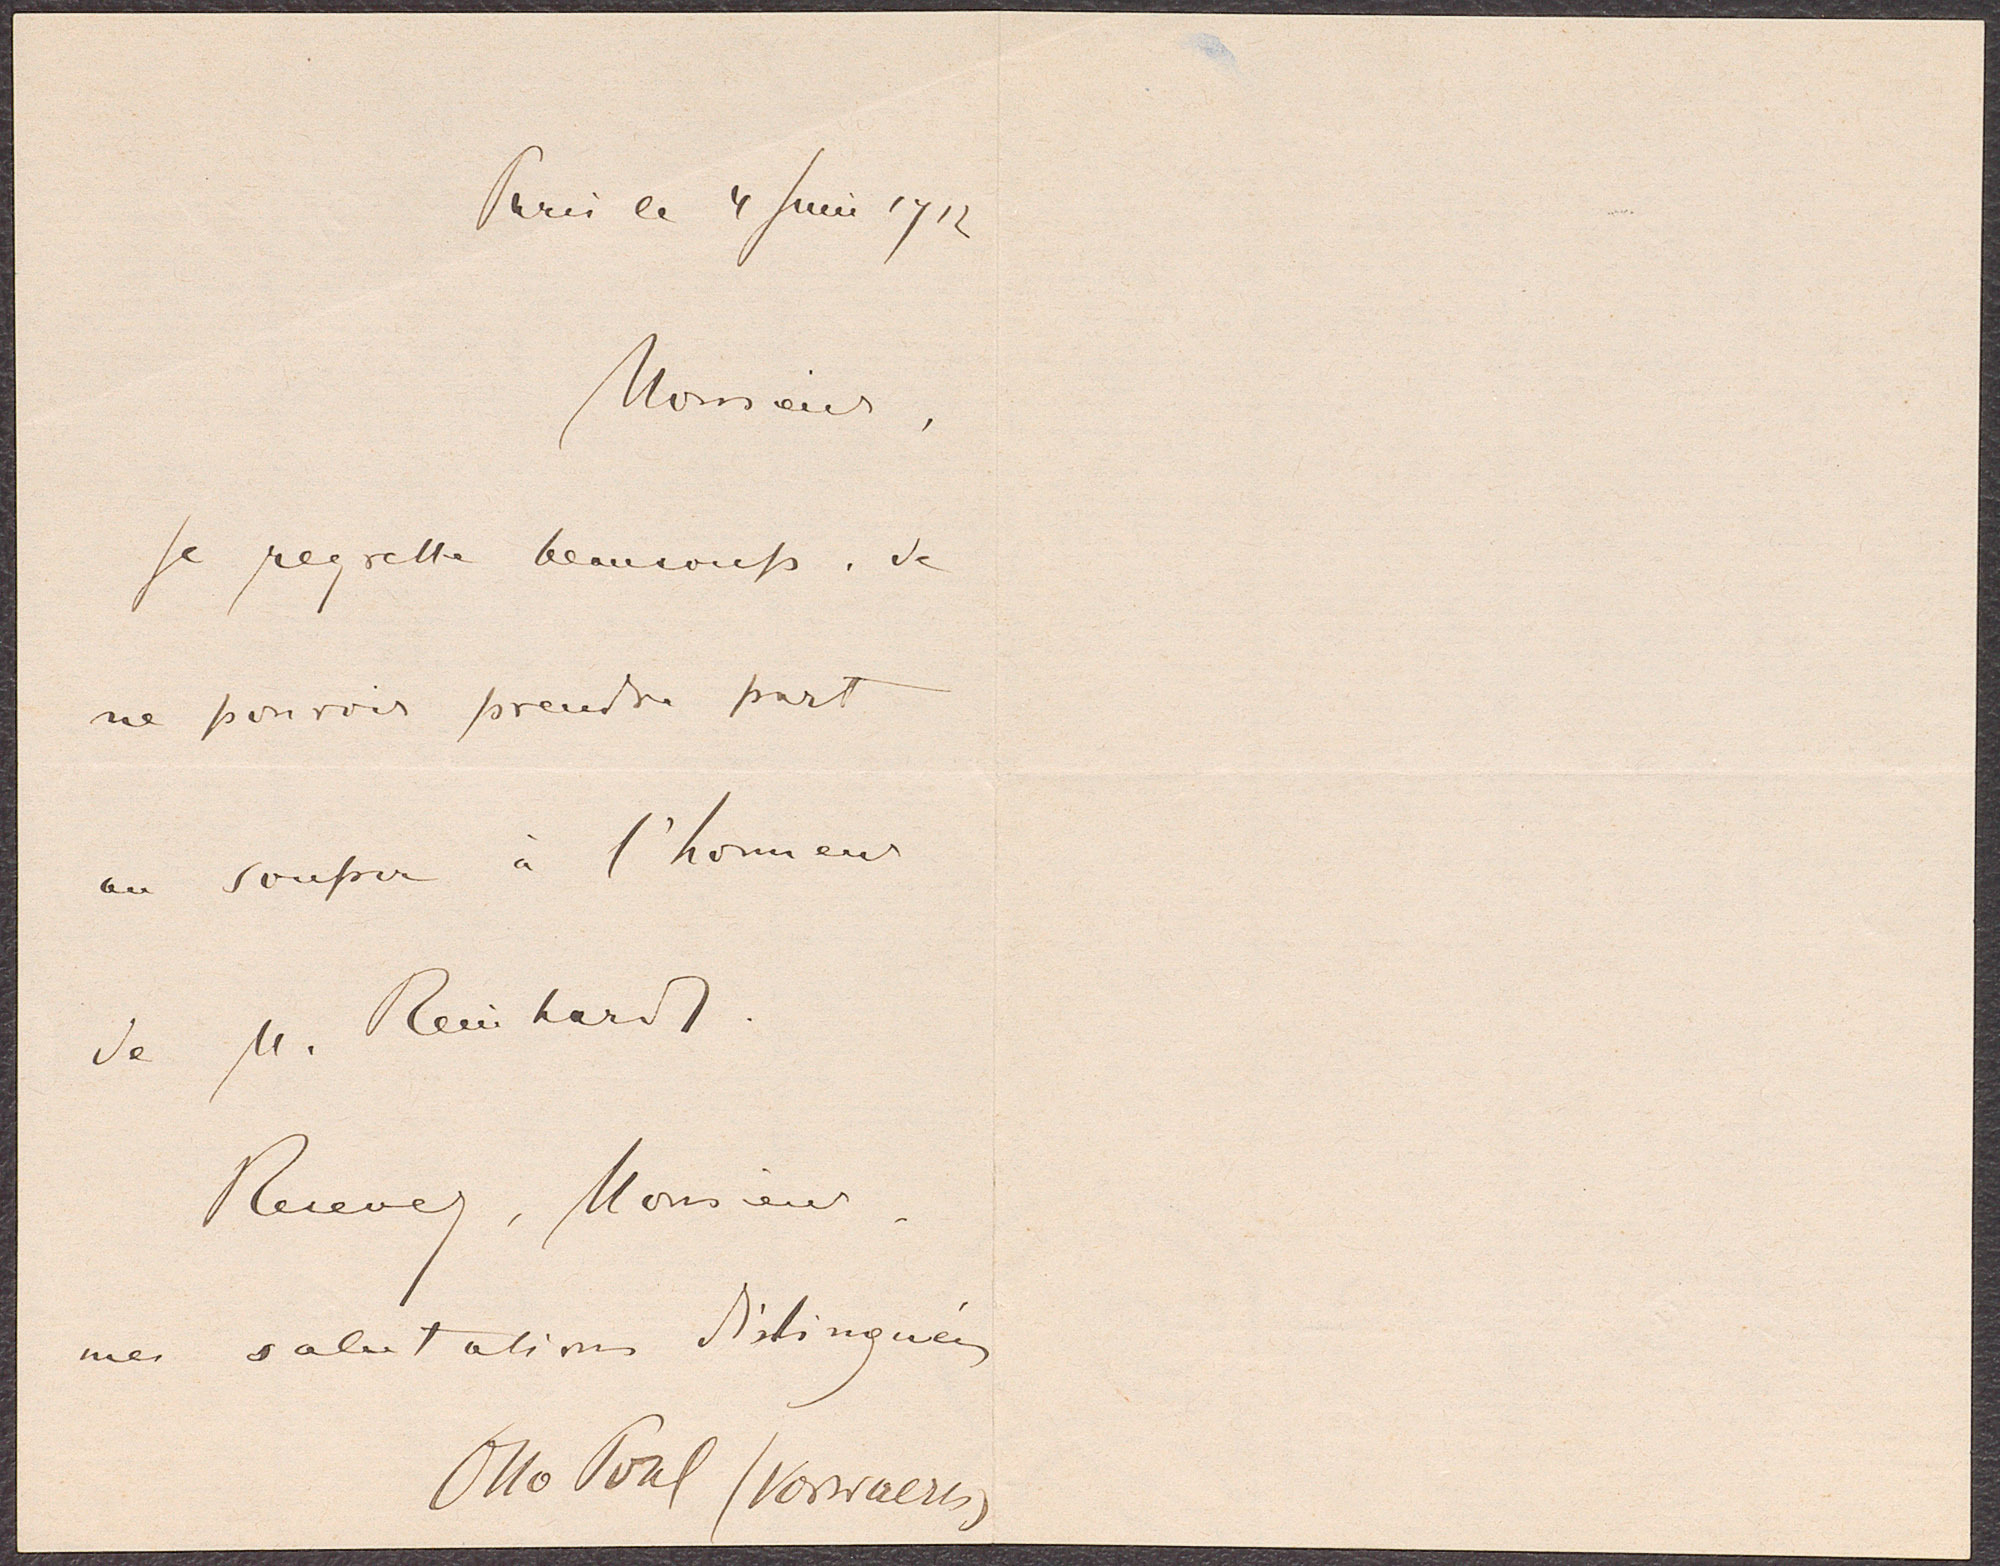 Paris le 4 Juin 1912
Monsieur,
je regrette beaucoup de
ne pouvoir prendre part
au souper à l'honneur
de M. Reinhardt.
Recevez, Monsieur,
mes salutations distinguées
Otto Pohl (Vorwaerts)